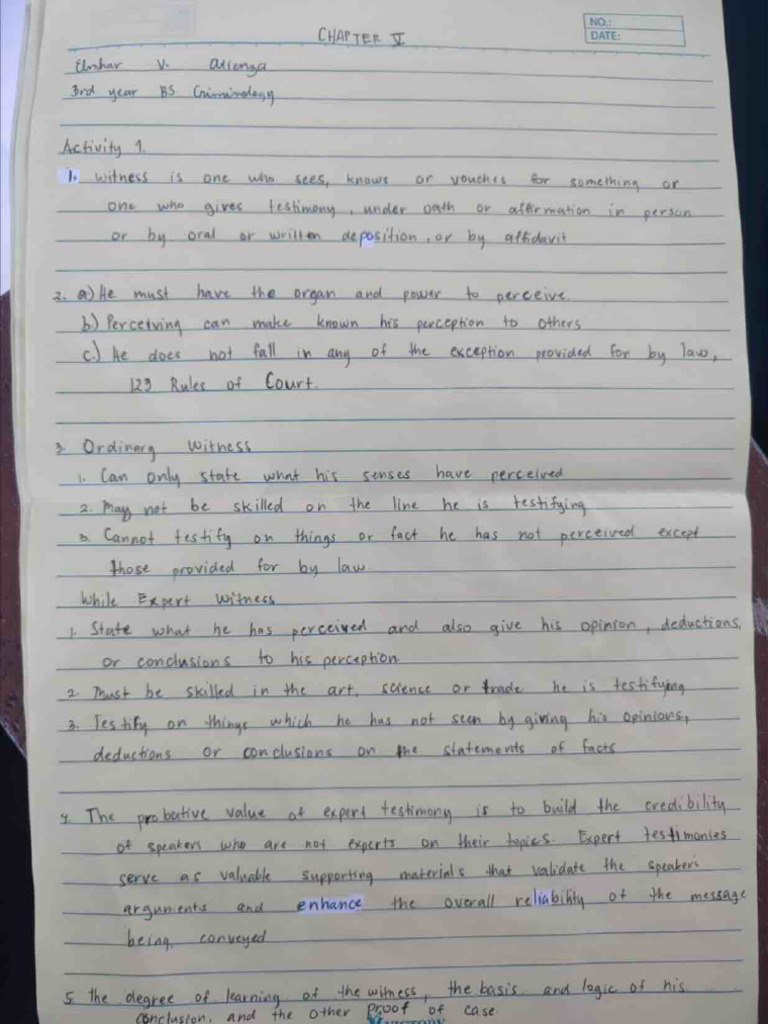 CHAPTER V
NO.:
DATE:
Elmhar V. Atienza
3rd year BS Criminology
Activity 1.
1. Witness is one who sees, knows or vouches for something or
one who gives testimony, under oath or affirmation in person
or by oral or written deposition, or by affidavit
2. a) He must have the organ and power to perceive.
b.) Perceiving can make known his perception to others
c.) He does not fall in any of the exception provided for by law,
123 Rules of Court.
3. Ordinary Witness
1. Can only state what his senses have perceived
2. May not be skilled on the line he is testifying
3. Cannot testify on things or fact he has not perceived except
those provided for by law.
While Expert Witness
1. State what he has perceived and also give his opinion, deductions,
or conclusions to his perception.
2. Must be skilled in the art, science or trade he is testifying
3. Testify on things which he has not seen by giving his opinions,
deductions or conclusions on the statements of facts
4. The probative value of expert testimony is to build the credibility
of speakers who are not experts on their topics. Expert testimonies
serve as valuable supporting materials that validate the speakers
arguments and enhance the overall reliability of the message
being conveyed
5. the degree of learning of the witness, the basis and logic of his
conclusion, and the other proof of case.
VICTORY